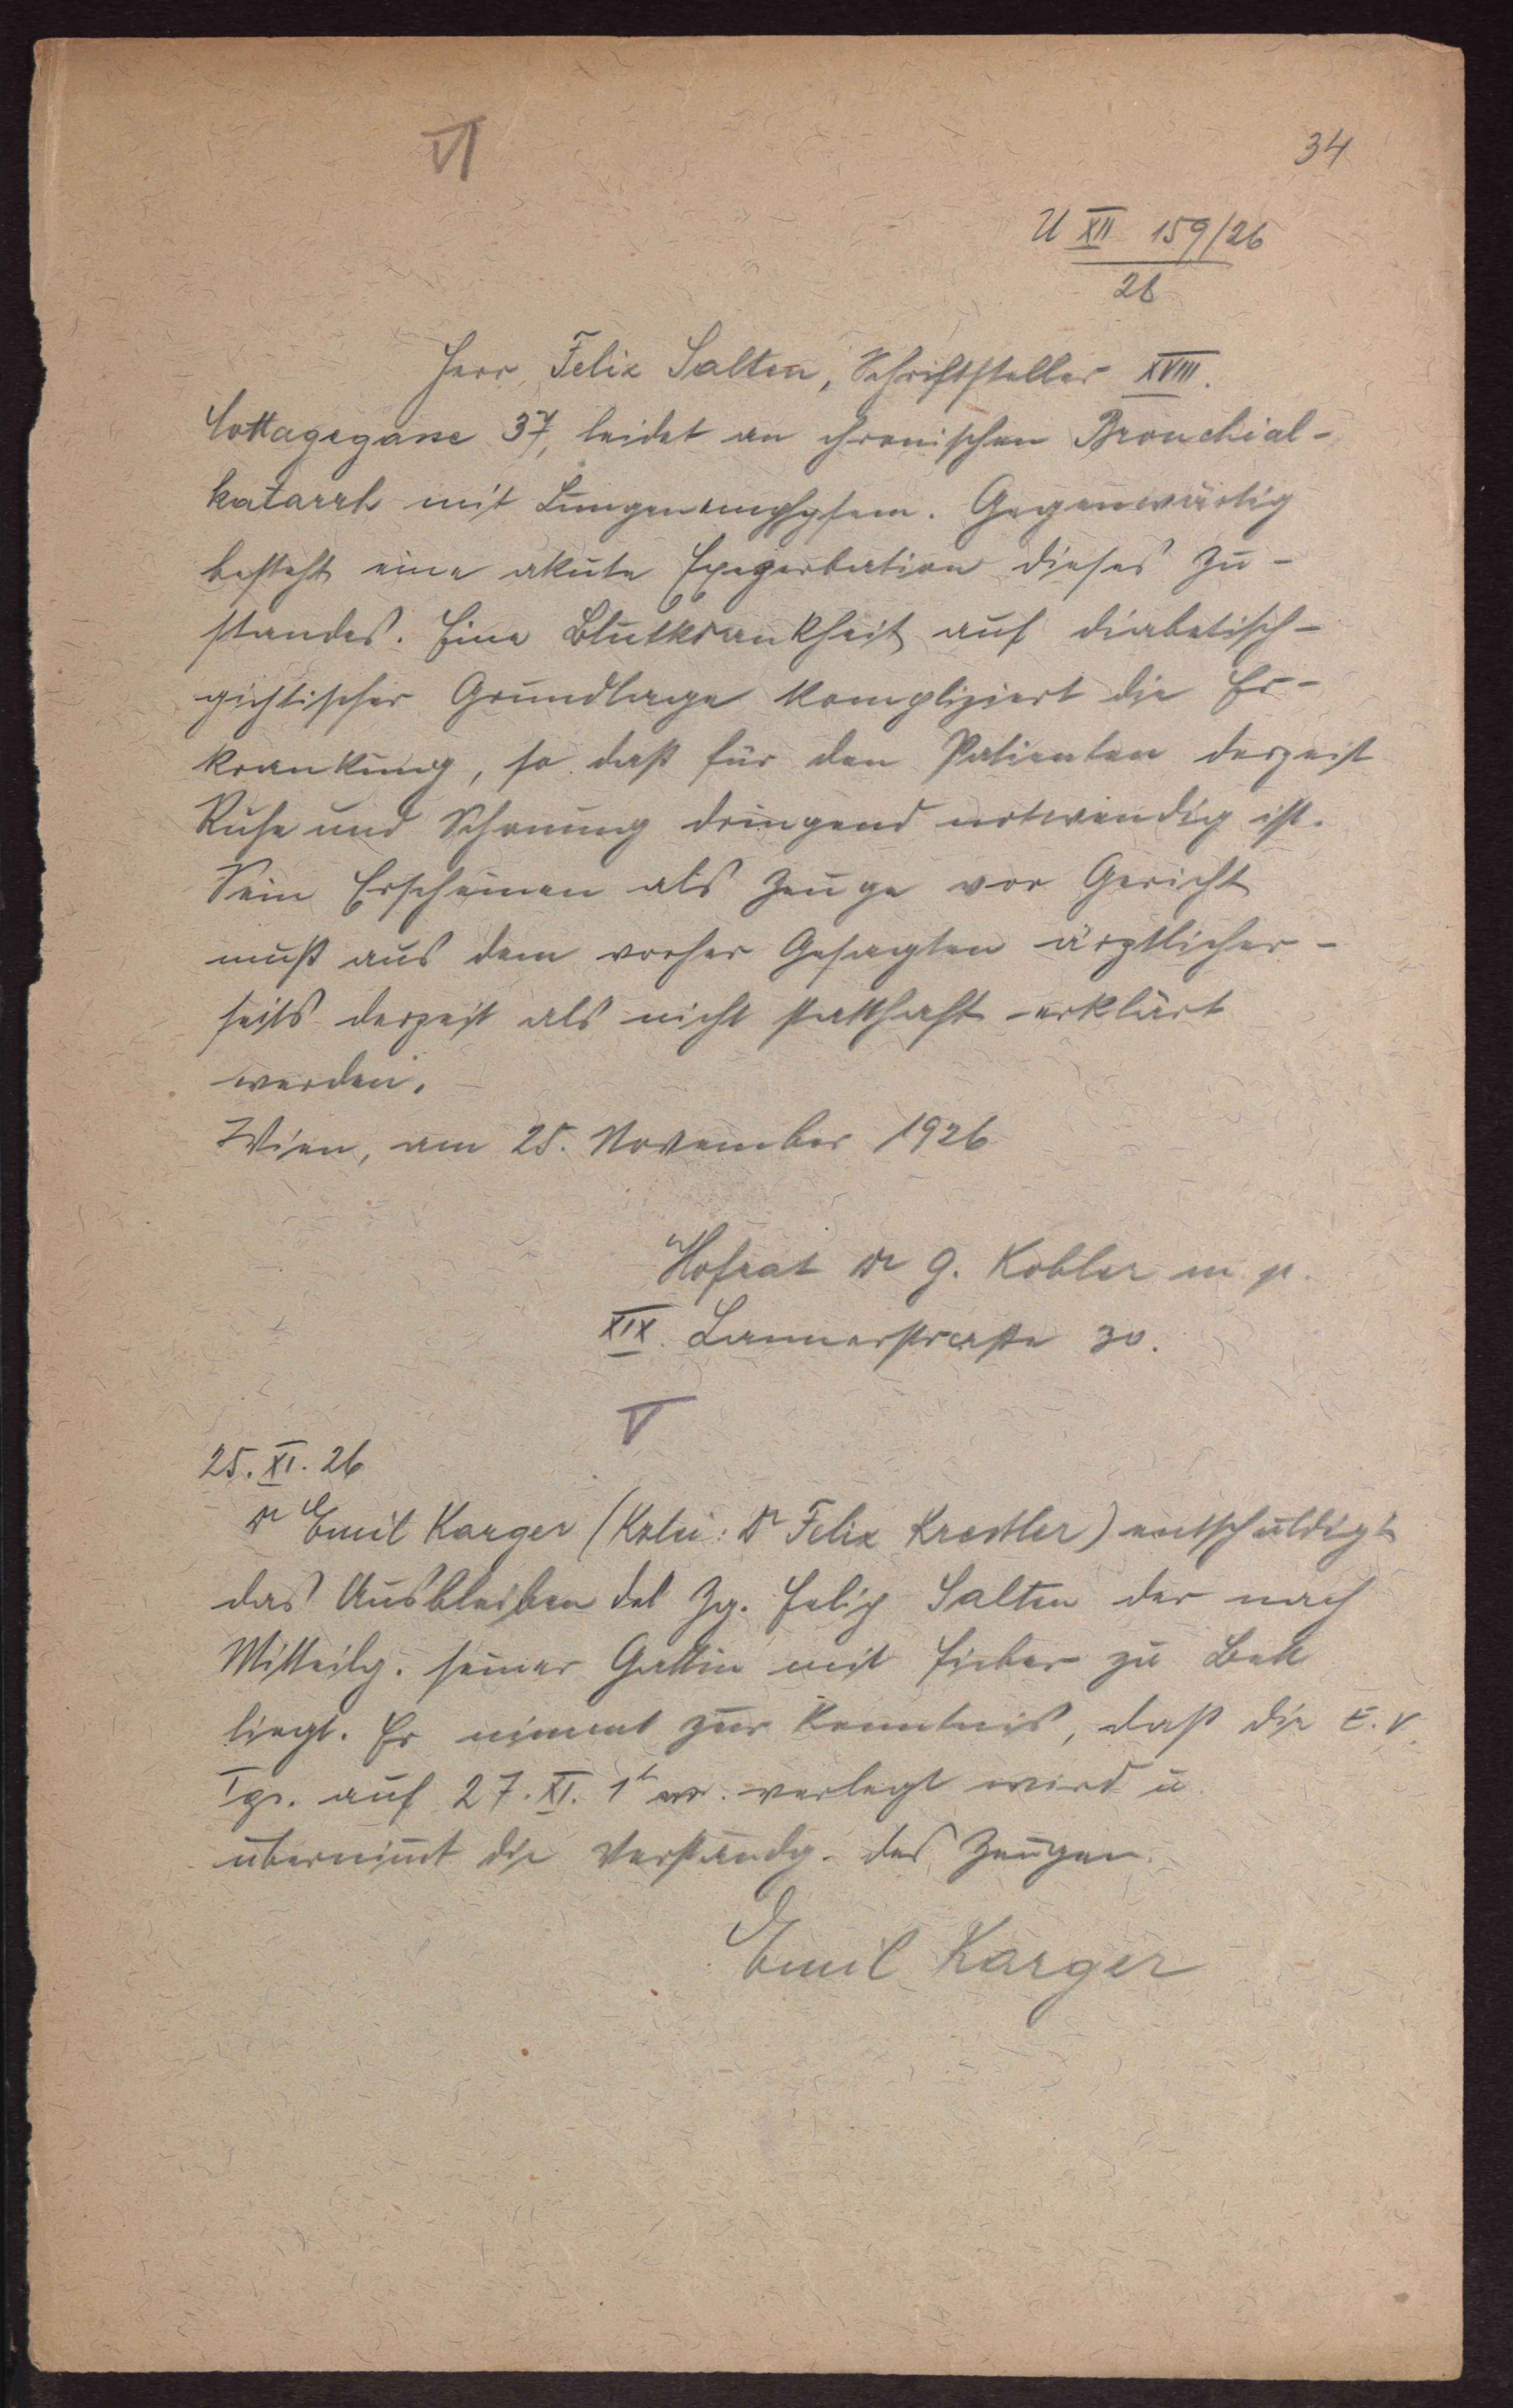 VI
34
U XII 159/26
26
Herr Felix Salten, Schriftsteller XVIII.
Cottagegasse 37, leidet an chronischen Bronchial-
katarrh mit Lungenemphysem. Gegenwärtig
besteht eine akute Exazerbation dieses Zu-
standes. Eine Blutkrankheit auf diabetisch-
gichtischer Grundlage kompliziert die Er-
krankung, so daß für den Patienten derzeit
Ruhe und Schonung dringend notwendig ist.
Sein Erscheinen als Zeuge vor Gericht
muß aus dem vorher Gesagten ärztlicher-
seits derzeit als nicht statthaft erklärt
werden.
Wien, am 25. November 1926
Hofrat Dr G. Kobler m. p.
XIX. Lannerstraße 30.
V
25. XI. 26
Dr Emil Karger (Kzlei: Dr Felix Krestler) entschuldigt
das Ausbleiben des Zg. Felix Salten der nach
Mitteilg. seiner Gattin mit Fieber zu Bett
liegt. Er nimmt zur Kenntnis, daß die E. V.
Tgs. auf 27. XI. 1h verlegt wird u
übernimt die Verständg. des Zeugen.
Emil Karger